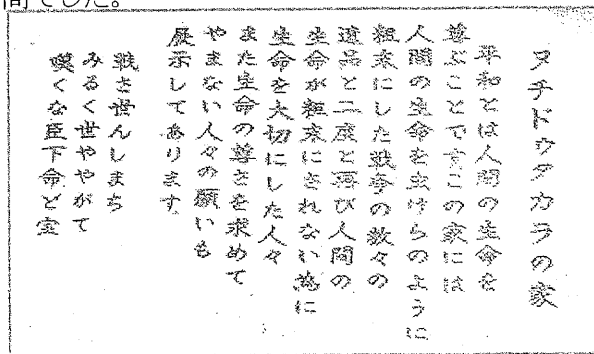 間でした。
ヌチドゥタカラの家
平和とは人間の生命を
尊ぶことですこの家には
人間の生命を虫けらのように
粗末にした戦争の数々の
遺品と二度と再び人間の
生命が粗末にされない為に
生命を大切にした人々
また生命の尊さを求めて
やまない人々の願いも
展示してあります
戦さ世んしまち
みるく世ややがて
嘆くな臣下命ど宝